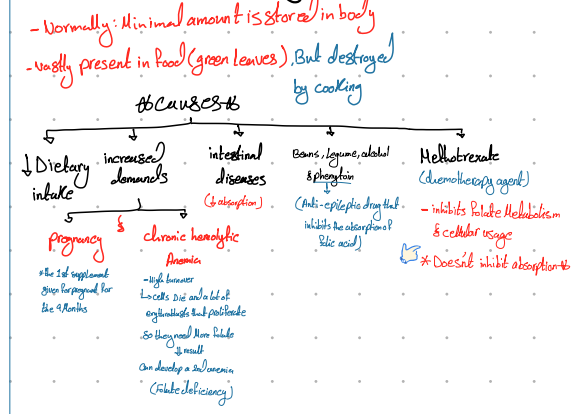 - Normally: Minimal amount is stored in body
- vastly present in Food (green leaves), But destroyed
by cooking
**causes**
↓ Dietary
intake
increased
demands
intestinal
diseases
(↓ absorption)
Beans, Legume, alcohol
& phenytoin
(Anti-epileptic drug that
inhibits the absorption of
Folic acid)
Methotrexate
(chemotherapy agent)
- inhibits Folate Metabolism
& cellular usage
* Doesn't inhibit absorption **
pregnancy
&
chronic hemolytic
Anemia
* the 1st supplement
given for pregnant, for
the 9 Months
- High turnover
↳ cells Die and a lot of
erythroblasts that proliferate
so they need More folate
⇓ result
Can develop a 2nd anemia
(Folate deficiency)